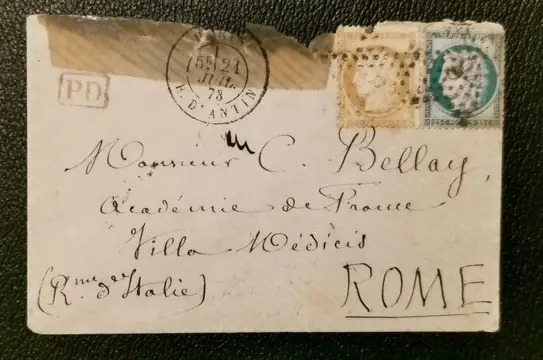 PD
5E 21
JUIL.
73
R. D'ANTIN
Monsieur C. Bellay,
Académie de France
Villa Médicis
(R.me d'Italie)
ROME